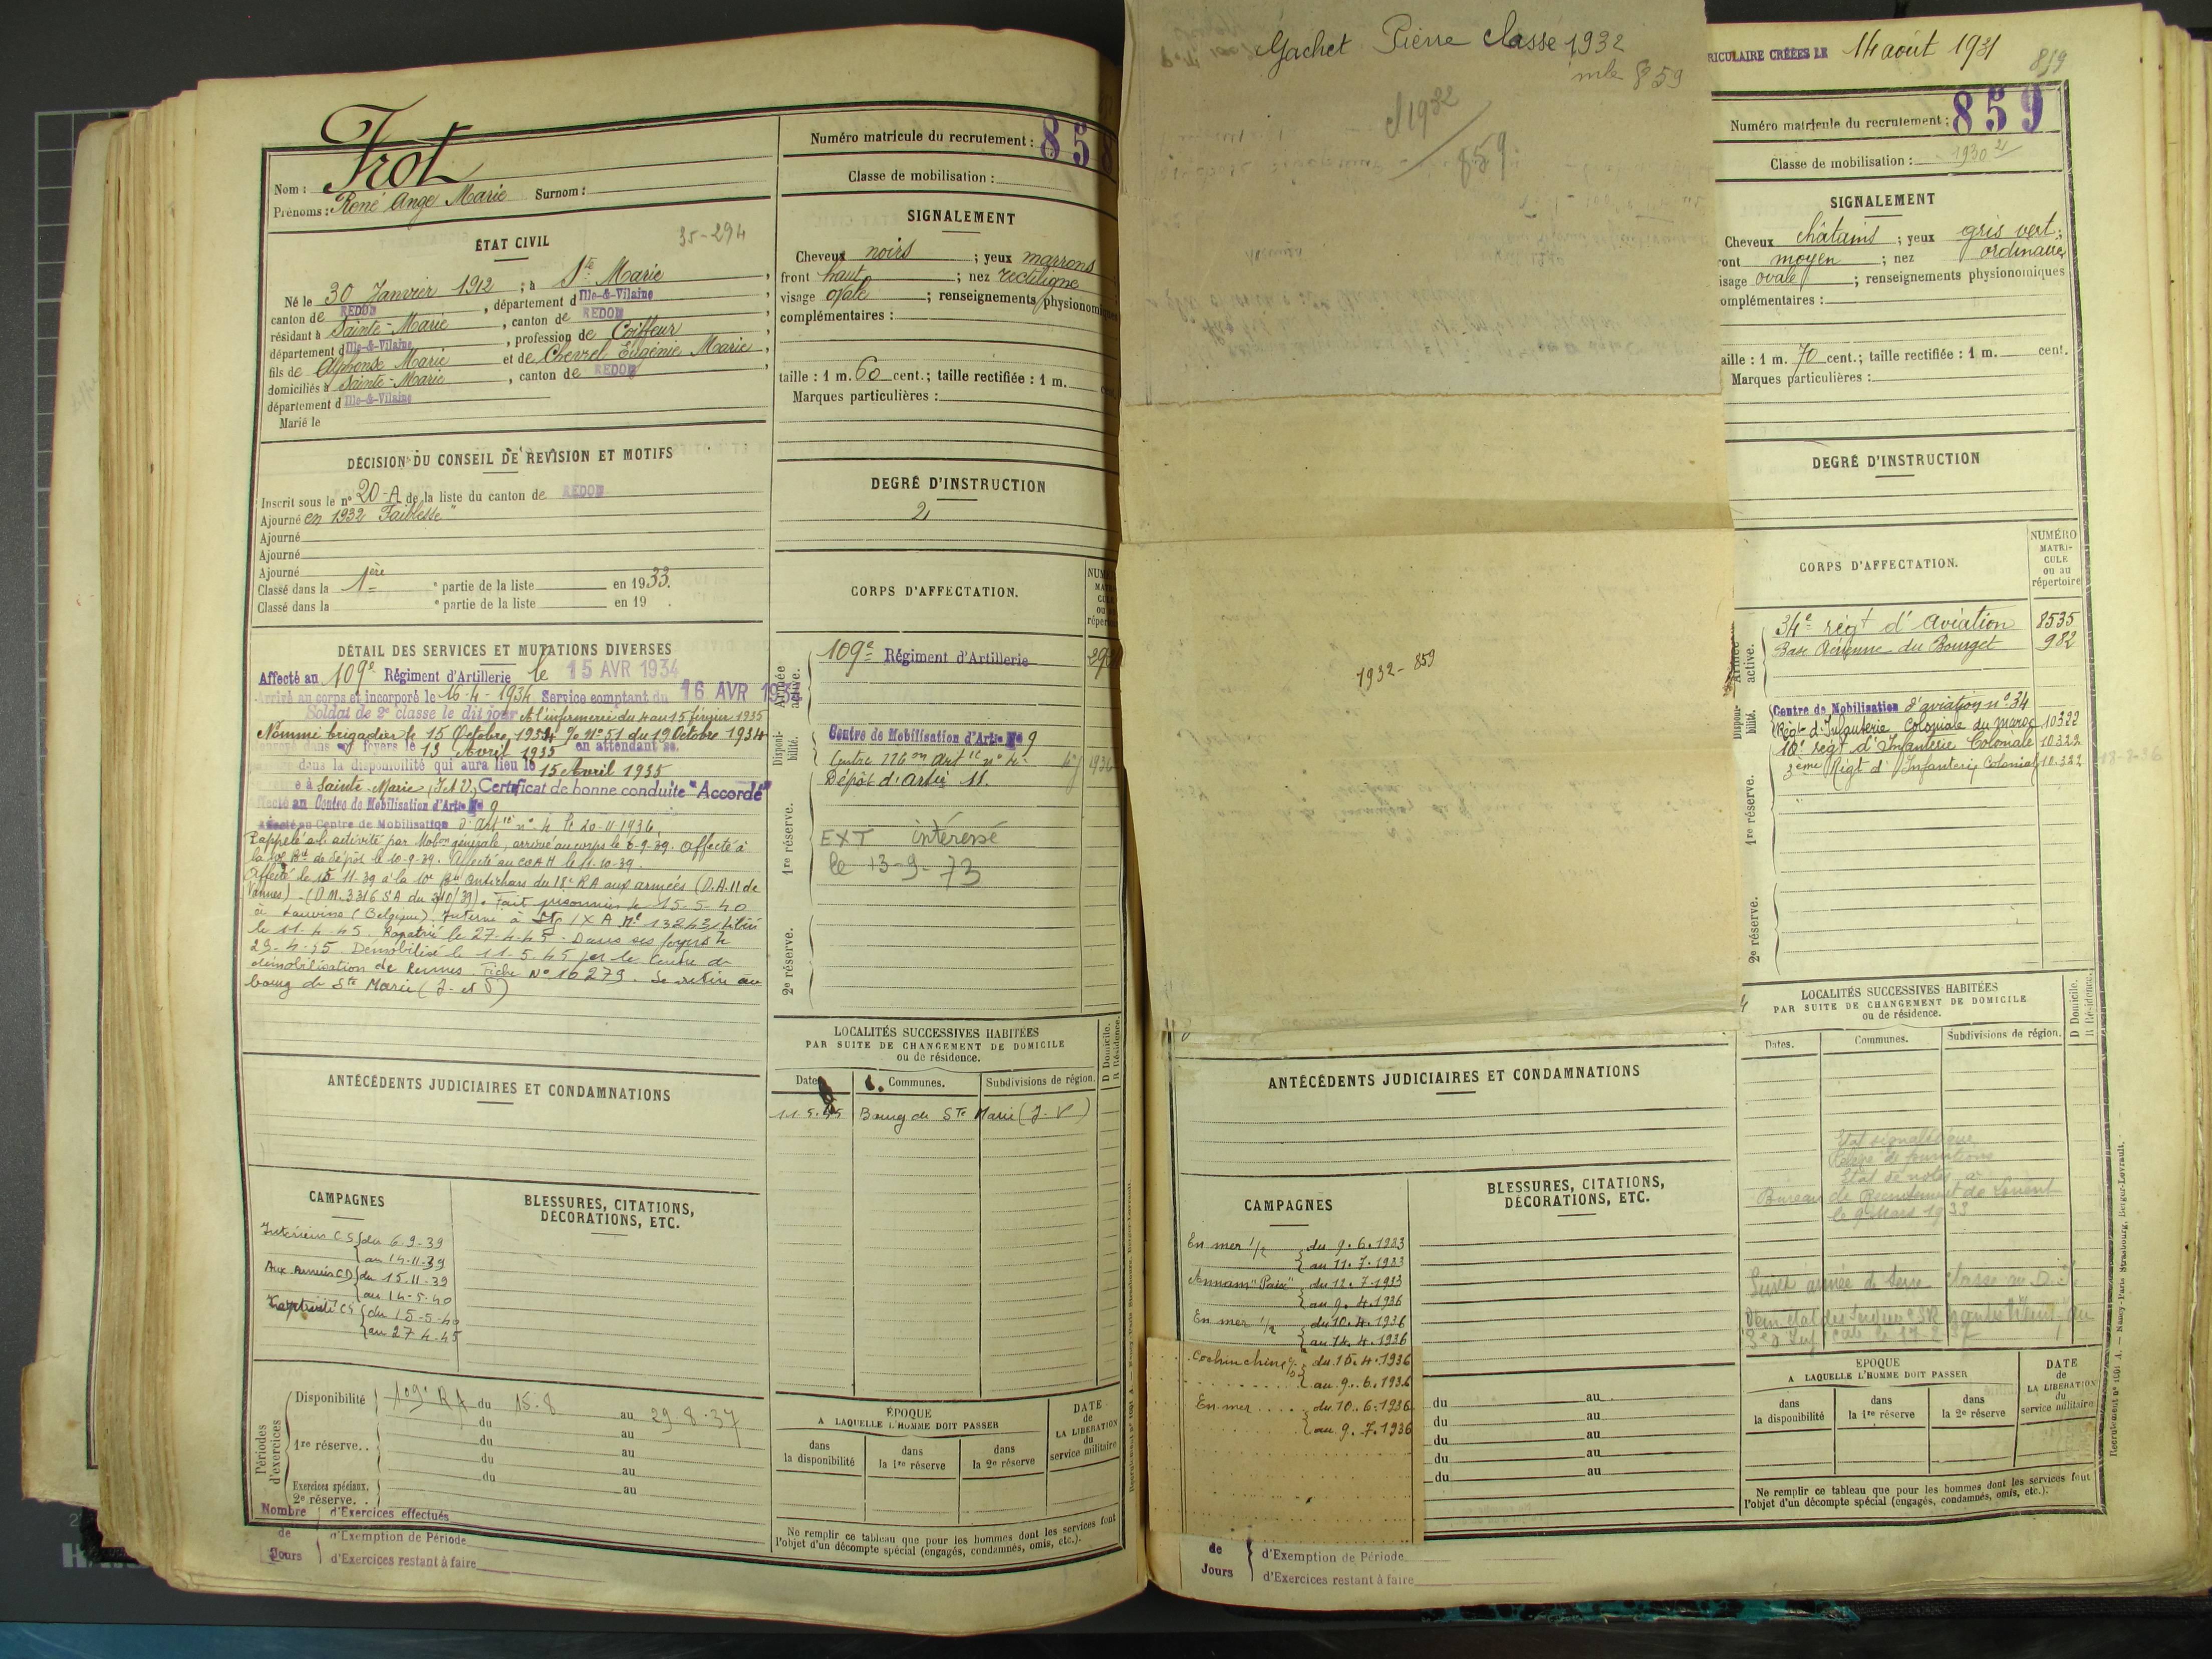 Frot
Nom :
Prénoms : René Ange Marie Surnom :
ÉTAT CIVIL
35-294
Né le 30 Janvier 1912 ; à Ste Marie ,
canton de REDON , département d Ille-&-Vilaine ,
résidant à Sainte-Marie , canton de REDON ,
département d Ille-&-Vilaine , profession de Coiffeur ,
fils de Alphonse Marie et de Chevrel Eugénie Marie ,
domiciliés à Sainte-Marie , canton de REDON ,
département d Ille-&-Vilaine
Marié le
DÉCISION DU CONSEIL DE REVISION ET MOTIFS
Inscrit sous le n° 20-A de la liste du canton de REDON
Ajourné en 1932 Faiblesse"
Ajourné
Ajourné
Ajourné
Classé dans la 1ère e partie de la liste en 1933.
Classé dans la e partie de la liste en 19 .
DÉTAIL DES SERVICES ET MUTATIONS DIVERSES
Affecté au 109e Régiment d'Artillerie le 15 AVR 1934
Arrivé au corps et incorporé le 16-4-1934 Service comptant du 16 AVR 1934
Soldat de 2e classe le dit jour A l'infirmerie du 4 au 15 février 1935
Nommé brigadier le 15 Octobre 1934 N° 51 du 19 Octobre 1934
dans ses foyers le 13 Avril 1935 en attendant sa
dans la disponibilité qui aura lieu le 15 Avril 1935
à Sainte-Marie (I et V) Certificat de bonne conduite "Accordé"
Affecté au Centre de Mobilisation d'Artie N° 9
Affecté au Centre de Mobilisation d'Artie n° 4 le 20-11 1936
Rappelé à l'activité par Mobon générale, arrivé au corps le 6-9-39. Affecté à
la Bie de dépôt le 10-9-39. Affecté au COAH le 11-10-39.
Affecté le 15 11-39 à la 10e Bie Antichars du 18e RA aux armées (D.A.11 de
Vannes) - (D.M. 3316 SA du 3/10/39). Fait prisonnier le 15-5-40
à (Belgique) Interné à Stg IX A Ml 13243 libéré
le 11-4-45. Rapatrié le 27-4-45. Dans ses foyers le
29-4-45. Démobilisé le 11.5.45 par le Centre de
démobilisation de Rennes. Fiche N° 16279. Se retire au
bourg de Ste Marie (I. et V)
ANTÉCÉDENTS JUDICIAIRES ET CONDAMNATIONS
CAMPAGNES
Intérieur C S du 6-9-39
au 14-11-39
Aux Armées CD du 15.11-39
au 14-5-40
Captivité CS du 15-5-40
au 27 4-45
BLESSURES, CITATIONS,
DÉCORATIONS, ETC.
Périodes d'exercices
Disponibilité 109e RA du 15.8 au 29.8.37
du au
1re réserve.. du au
du au
Exercices spéciaux. du au
2e réserve. .
Nombre de Jours
d'Exercices effectués
d'Exemption de Période
d'Exercices restant à faire
Numéro matricule du recrutement : 858
Classe de mobilisation :
SIGNALEMENT
Cheveux noirs ; yeux marrons
front haut ; nez rectiligne
visage ovale ; renseignements physionomiques
complémentaires :
taille : 1 m. 60 cent. ; taille rectifiée : 1 m. cent.
Marques particulières :
DEGRÉ D'INSTRUCTION
2
CORPS D'AFFECTATION.
Armée active.
109e Régiment d'Artillerie
Disponibilité.
Centre de Mobilisation d'Artie N° 9
Dépôt d'artie 11.
1re réserve.
EXT intéressé
le 13-9-73
2e réserve.
LOCALITÉS SUCCESSIVES HABITÉES
PAR SUITE DE CHANGEMENT DE DOMICILE
ou de résidence.
D Domicile.
R Résidence.
Dates. Communes. Subdivisions de région.
11.5.45 Bourg de Ste Marie (I. V)
ÉPOQUE
A LAQUELLE L'HOMME DOIT PASSER
DATE
de
LA LIBÉRATION
du
service militaire
dans
la disponibilité
dans
la 1re réserve
dans
la 2e réserve
Ne remplir ce tableau que pour les hommes dont les services font
l'objet d'un décompte spécial (engagés, condamnés, omis, etc.).
Gachet Pierre classe 1932
mle 859
cl 1932
859
1932-859
ANTÉCÉDENTS JUDICIAIRES ET CONDAMNATIONS
CAMPAGNES
En mer 1/2 du 9.6.1933
au 11.7.1933
Annam "Paix" du 12.7.1933
au 9.4.1936
En mer 1/2 du 10.4.1936
au 14.4.1936
Cochinchine du 15.4.1936
au 9.6.1936
En mer du 10.6.1936
au 9.7.1936
BLESSURES, CITATIONS,
DÉCORATIONS, ETC.
du au
du au
du au
du au
du au
de
Jours
d'Exemption de Période
d'Exercices restant à faire
RICULAIRE CRÉÉES LE 14 août 1931
859
Numéro matricule du recrutement : 859
Classe de mobilisation : 1930
SIGNALEMENT
Cheveux châtains ; yeux gris vert ;
ront moyen ; nez ordinaire
isage ovale ; renseignements physionomiques
omplémentaires :
aille : 1 m. 70 cent. ; taille rectifiée : 1 m. cent.
Marques particulières :
DEGRÉ D'INSTRUCTION
CORPS D'AFFECTATION.
NUMÉRO
MATRI-
CULE
ou au
répertoire
Armée active.
34e régt d'aviation 8535
Base Aérienne du Bourget 982
Disponibilité.
Centre de Mobilisation d'aviation n° 34
Régt d'Infanterie Coloniale du Maroc 10322
10e régt d'Infanterie Coloniale 10322
3ème Régt d'Infanterie Coloniale 10.322
18-2-36
1re réserve.
2e réserve.
LOCALITÉS SUCCESSIVES HABITÉES
PAR SUITE DE CHANGEMENT DE DOMICILE
ou de résidence.
D Domicile.
R Résidence.
Dates. Communes. Subdivisions de région.
Etat signalétique
Relevé de punitions
Etat de notes à
Bureau de Recrutement de Lorient
le 9 Mars 1933
ÉPOQUE
A LAQUELLE L'HOMME DOIT PASSER
DATE
de
LA LIBÉRATION
du
service militaire
dans
la disponibilité
dans
la 1re réserve
dans
la 2e réserve
Ne remplir ce tableau que pour les hommes dont les services font
l'objet d'un décompte spécial (engagés, condamnés, omis, etc.).
Nancy-Paris Strasbourg, Berger-Levrault.